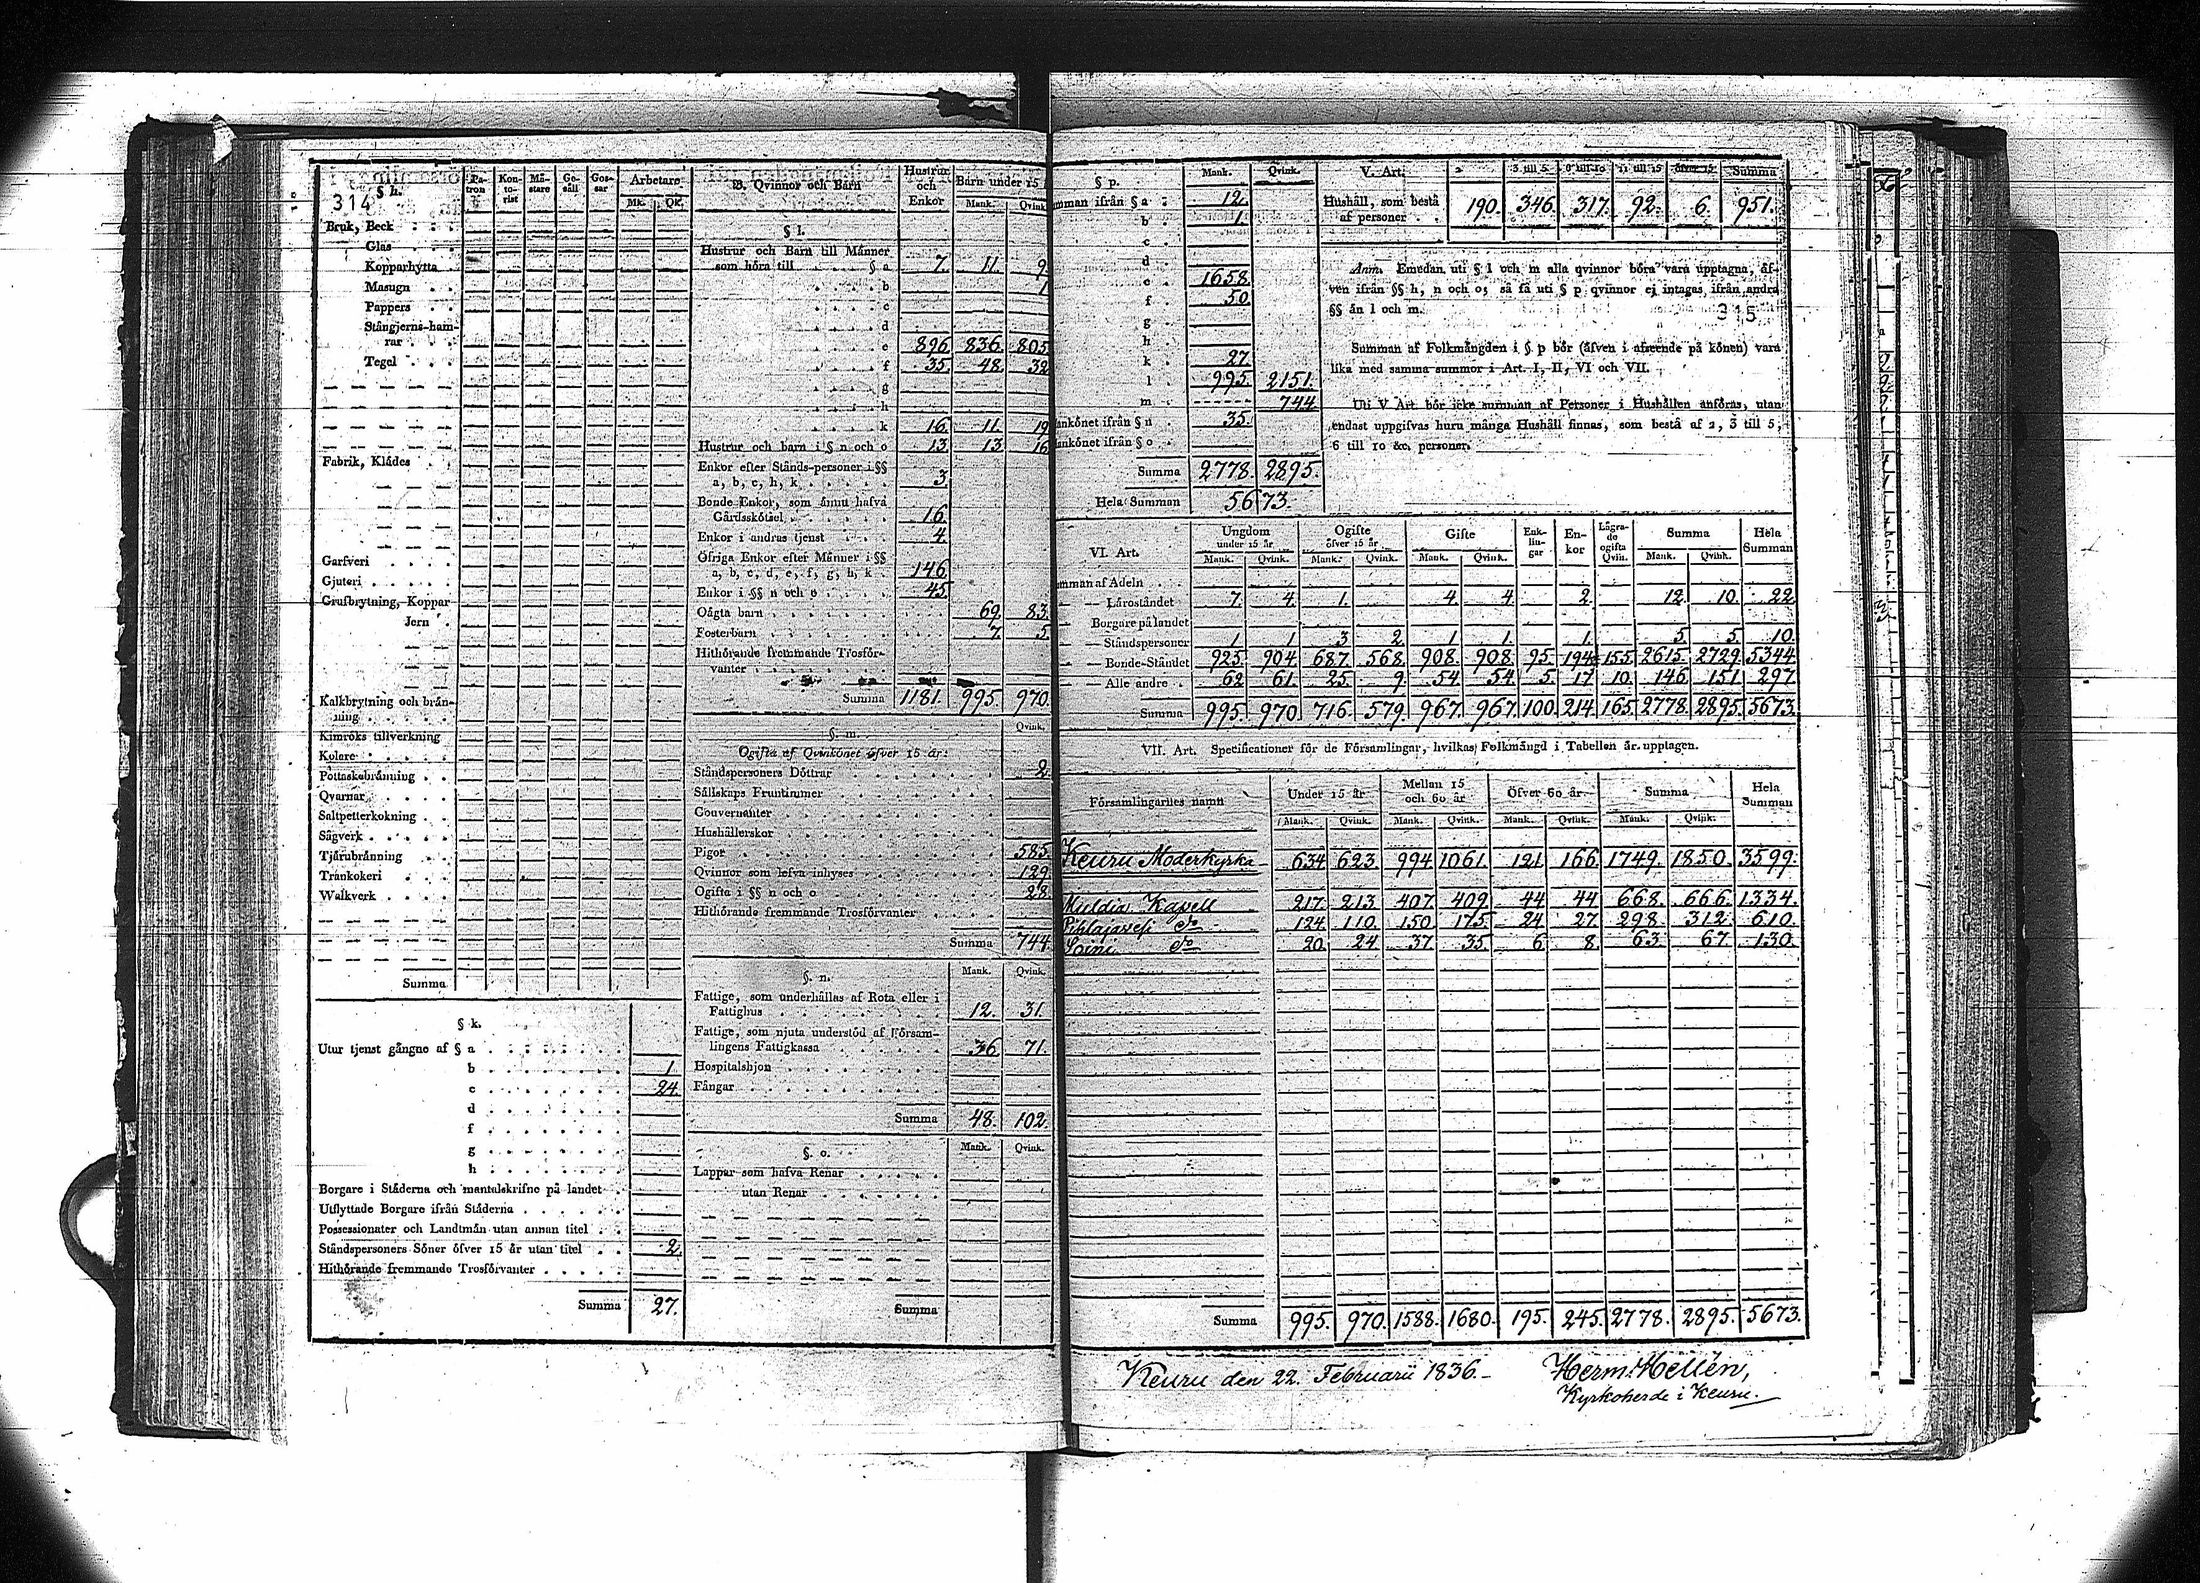 314
§ h.
Pa- tron
Kon- to- rist
Mä- stare
Ge- säll
Gos- sar
Arbetare
Mk. Qk.
Bruk, Beck
Glas
Kopparhytta
Masugn
Pappers
Stångjerns-ham-
rar
Tegel
Fabrik, Klädes
Garfveri
Gjuteri
Grufbrytning, Koppar
Jern
Kalkbrytning och brän-
ning
Kimröks tillverkning
Kolare
Pottaskebränning
Qvarnar
Saltpetterkokning
Sågverk
Tjärubränning
Trankokeri
Walkverk
Summa
§ k.
Utur tjenst gångne af § a
b 1.
c 24.
d
f
g
h
Borgare i Städerna och mantalskrifne på landet
Utflyttade Borgare ifrån Städerna
Possessionater och Landtmän utan annan titel
Ståndspersoners Söner öfver 15 år utan titel 2.
Hithörande fremmande Trosförvanter
Summa 27.
B. Qvinnor och Barn
Hustrur och Enkor
Barn under 15
Mank. Qvink.
§ l.
Hustrur och Barn till Männer
som höra till § a 7. 11. 9.
b 1.
c
d
e 896. 836. 805.
f 35. 48. 32.
g
h
k 16. 11. 19.
Hustrur och barn i § n och o 13. 13. 16.
Enkor efter Stånds-personer i §§
a, b, c, h, k 3.
Bonde-Enkor, som ännu hafva
Gårdsskötsel 16.
Enkor i andras tjenst 4.
Öfriga Enkor efter Männer i §§
a, b, c, d, e, f, g, h, k 146.
Enkor i §§ n och o 45.
Oägta barn 69. 83.
Fosterbarn 7. 5.
Hithörande fremmande Trosför-
vanter
Summa 1181. 995. 970.
§. m. Qvink.
Ogifta af Qvinkönet öfver 15 år:
Ståndspersoners Döttrar 2.
Sällskaps Fruntimmer
Gouvernanter
Hushållerskor
Pigor 585.
Qvinnor som lefva inhyses 129.
Ogifta i §§ n och o 28.
Hithörande fremmande Trosförvanter
Summa 744.
§. n. Mank. Qvink.
Fattige, som underhållas af Rota eller i
Fattighus 12. 31.
Fattige, som njuta understöd af Försam-
lingens Fattigkassa 36. 71.
Hospitalshjon
Fångar
Summa 48. 102.
§. o. Mank. Qvink.
Lappar som hafva Renar
utan Renar
Summa
§ p. Mank. Qvink.
mman ifrån § a 12.
b 1.
c
d
e 1658.
f 50.
g
h
k 27.
l 995. 2151.
m 744.
ankönet ifrån § n 35.
ankönet ifrån § o
Summa 2778. 2895.
Hela Summan 5673.
V. Art. 2 3 till 5 6 till 10 11 till 15 öfver 15 Summa
Hushåll, som bestå
af personer 190. 346. 317. 92. 6. 951.
Anm. Emedan uti § l och m alla qvinnor böra vara upptagna, äf-
ven ifrån §§ h, n och o; så få uti § p qvinnor ej intagas ifrån andra
§§ än l och m.
315
Summan af Folkmängden i § p bör (äfven i afseende på könen) vara
lika med samma summor i Art. I, II, VI och VII.
Uti V Art bör icke summan af Personer i Hushållen anföras, utan
endast uppgifvas huru många Hushåll finnas, som bestå af 2, 3 till 5,
6 till 10 &c. personer.
VI. Art.
Ungdom under 15 år
Ogifte öfver 15 år
Gifte
Enk- lin- gar
En- kor
Lägra- de ogifta Qvin.
Summa
Hela Summan
Mank. Qvink. Mank. Qvink. Mank. Qvink. Mank. Qvink.
mman af Adeln
Läroståndet 7. 4. 1. 4. 4. 2. 12. 10. 22.
Borgare på landet
Ståndspersoner 1. 1. 3. 2. 1. 1. 1. 5. 5. 10.
Bonde-Ståndet 925. 904. 687. 568. 908. 908. 95. 194. 155. 2615. 2729. 5344.
Alle andre 62. 61. 25. 9. 54. 54. 5. 17. 10. 146. 151. 297.
Summa 995. 970. 716. 579. 967. 967. 100. 214. 165. 2778. 2895. 5673.
VII. Art. Specificationer för de Församlingar, hvilkas Folkmängd i Tabellen är upptagen.
Församlingarnes namn
Under 15 år
Mellan 15 och 60 år
Öfver 60 år
Summa
Hela Summan
Mank. Qvink. Mank. Qvink. Mank. Qvink. Mank. Qvink.
Keuru Moderkyrka 634. 623. 994. 1061. 121. 166. 1749. 1850. 3599.
Muldia Kapell 217. 213. 407. 409. 44. 44. 668. 666. 1334.
Pihlajavesi do 124. 110. 150. 175. 24. 27. 298. 312. 610.
Soini do 20. 24. 37. 35. 6. 8. 63. 67. 130.
Summa 995. 970. 1588. 1680. 195. 245. 2778. 2895. 5673.
Keuru den 22. Februarii 1836.
Herm. Hellén,
Kyrkoherde i Keuru.